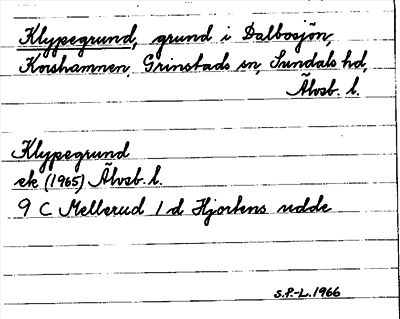 Klypegrund, grund i Dalbosjön,
Korshamnen, Grinstads sn, Sundals hd,
Älvsb. l.
Klypegrund
ek (1965) Älvsb. l.
9 C Mellerud 1 d Hjortens udde
S.P.-L. 1966